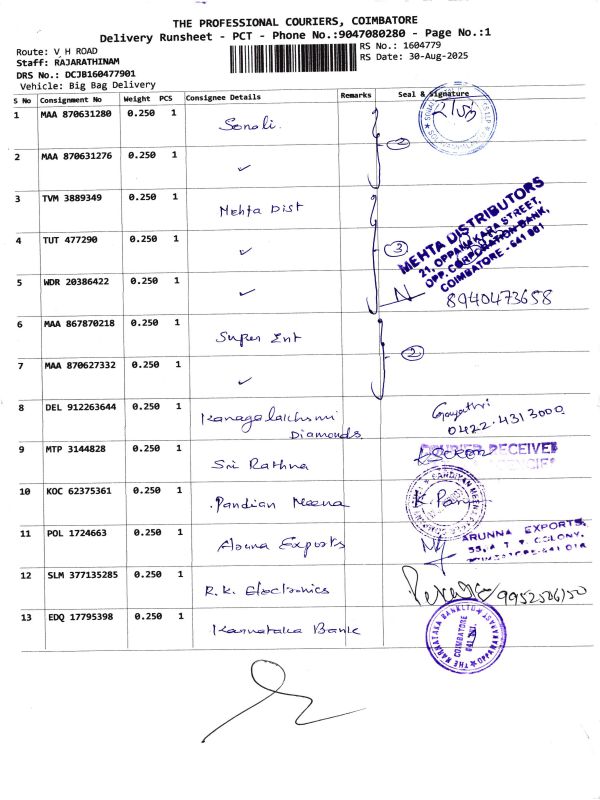 THE PROFESSIONAL COURIERS, COIMBATORE
Delivery Runsheet - PCT - Phone No.:9047080280 - Page No.:1
Route: V H ROAD
RS No.: 1604779
Staff: RAJARATHINAM
RS Date: 30-Aug-2025
DRS No.: DCJB160477901
Vehicle: Big Bag Delivery
S No Consignment No Weight PCS Consignee Details Remarks Seal & Signature
1 MAA 870631280 0.250 1 Sonali.
2 MAA 870631276 0.250 1 ✓ 2
3 TVM 3889349 0.250 1 Mehta Dist
4 TUT 477290 0.250 1 ✓ 3
MEHTA DISTRIBUTORS
21, OPPANAKARA STREET,
OPP. CORPORATION BANK,
COIMBATORE - 641 001
5 WDR 20386422 0.250 1 ✓ 8940473658
6 MAA 867870218 0.250 1 Super Ent
7 MAA 870627332 0.250 1 ✓ 2
8 DEL 912263644 0.250 1 Kanagalakshmi
Diamonds
Gayathri
0422.4313000
9 MTP 3144828 0.250 1 Sri Rathna
10 KOC 62375361 0.250 1 Pandian Meena
11 POL 1724663 0.250 1 Aruna Exports
ARUNNA EXPORTS,
12 SLM 377135285 0.250 1 R.K. Electronics 9952506150
13 EDQ 17795398 0.250 1 Karnataka Bank
THE KARNATAKA BANK LTD
COIMBATORE